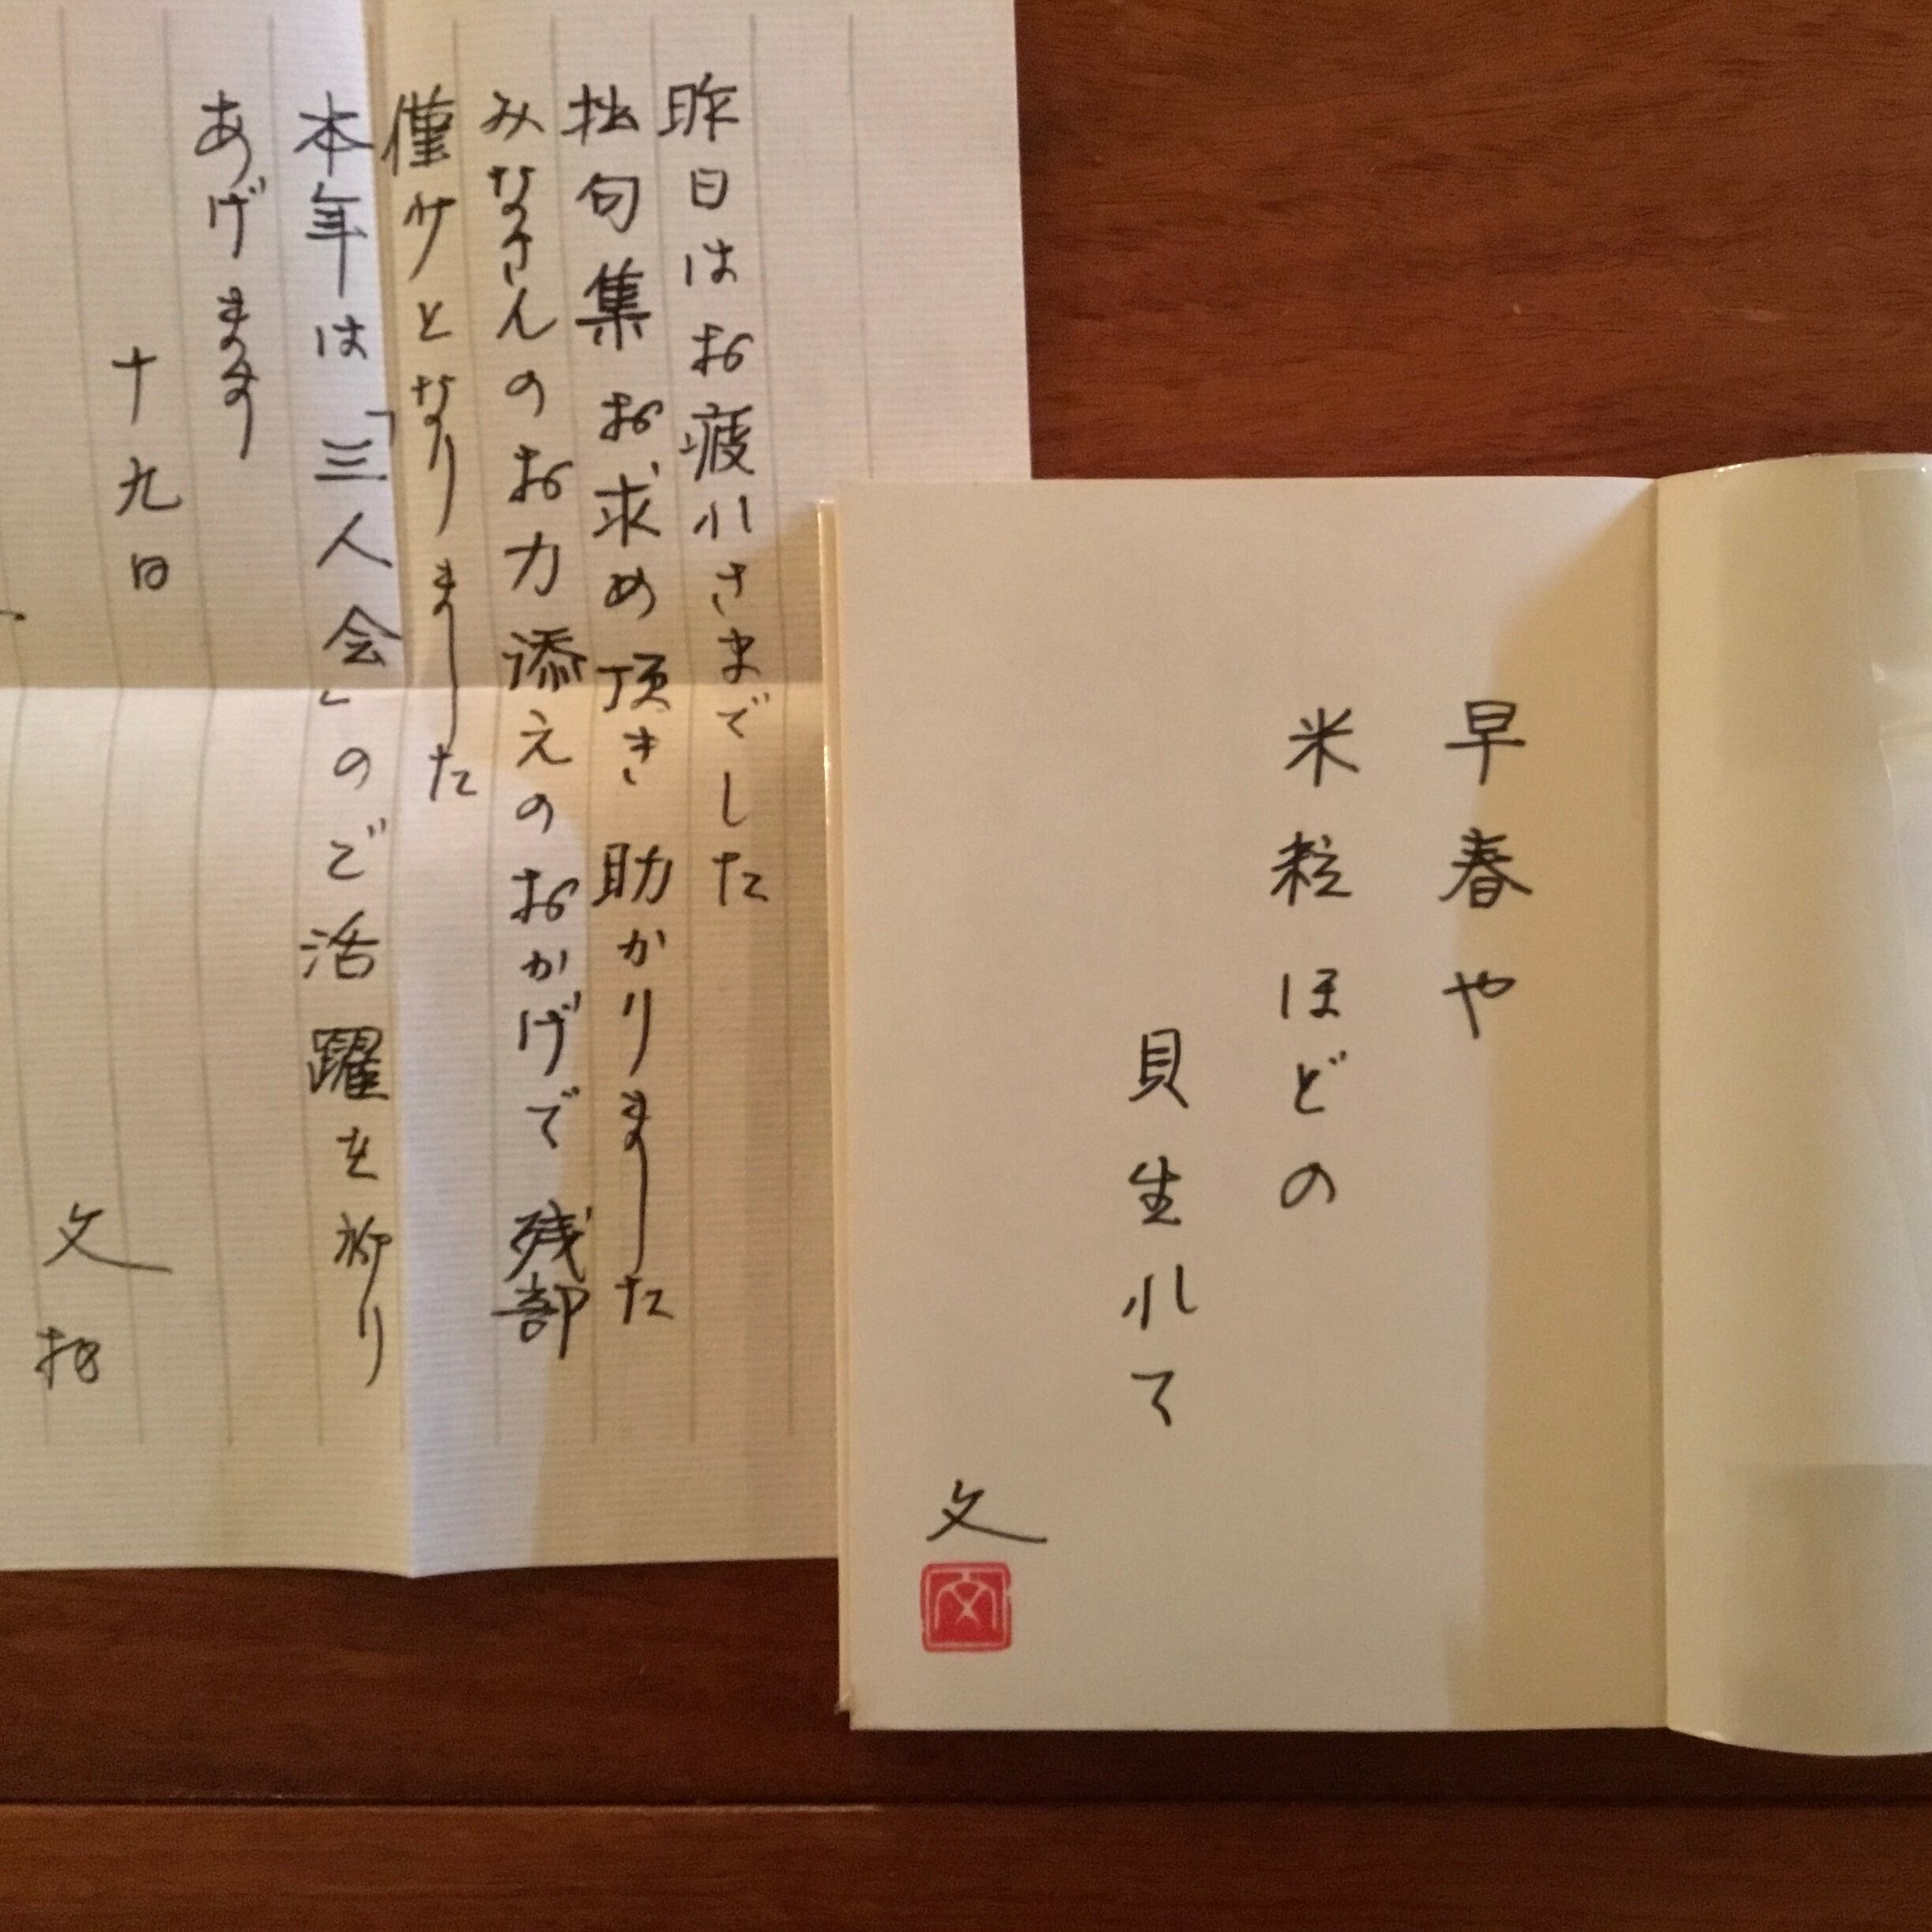 昨日はお疲れさまでした
拙句集お求め頂き助かりました
みなさんのお力添えのおかげで残部
僅少となりました
本年は「三人会」のご活躍を祈り
あげます
十九日
文
早春や
米粒ほどの
貝生れて
文
文